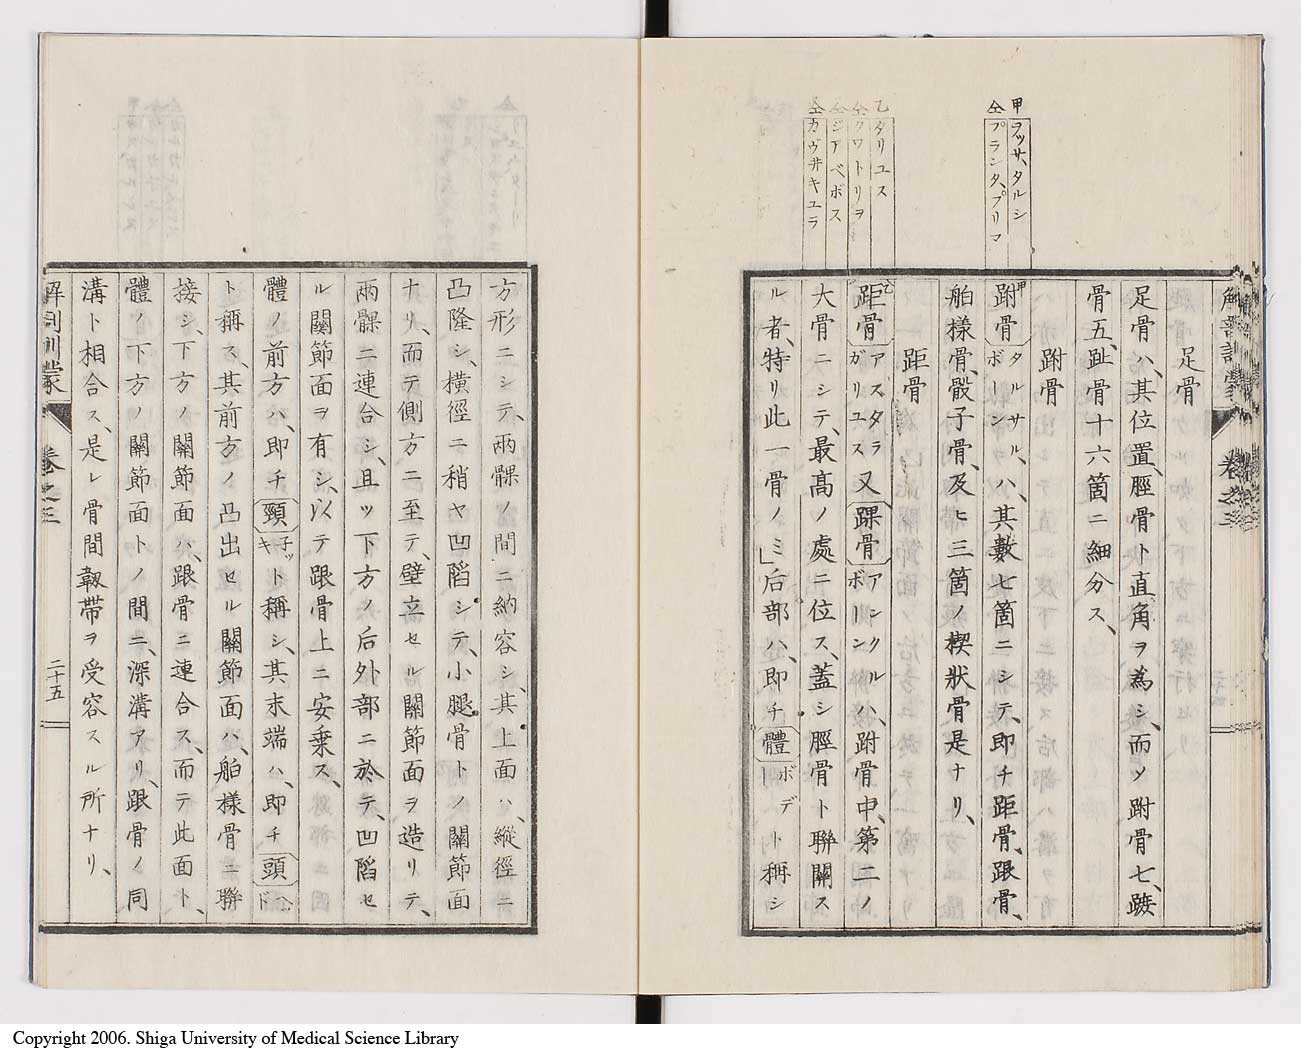 甲 ヲッサ、タルシ
仝 プランタ、プリマ
乙 タリユス
仝 クワトリヲ
仝 ジアベボス
仝 カヴ井キユラ
解剖訓蒙 卷之三
足骨
足骨ハ、其位置、脛骨ト直角ヲ為シ、而ソ跗骨七、蹠
骨五、趾骨十六箇ニ細分ス、
跗骨
甲跗骨タルサル、ボーンハ、其數七箇ニシテ、即チ距骨、跟骨、
舶樣骨、骰子骨、及ヒ三箇ノ楔狀骨是ナリ、
距骨
乙距骨アスタラガリユス又踝骨アンクル、ボーンハ、跗骨中、第二ノ
大骨ニシテ、最高ノ處ニ位ス、蓋シ脛骨ト聯關ス
ル者、特リ此一骨ノミ」后部ハ、即チ體ボデート稱シ
方形ニシテ、兩髁ノ間ニ納容シ、其上面ハ、縱徑ニ
凸隆シ、橫徑ニ稍ヤ凹陷シテ、小腿骨トノ關節面
ナリ、而テ側方ニ至テ、壁立セル關節面ヲ造リテ、
兩髁ニ連合シ、且ツ下方ノ后外部ニ於テ、凹陷セ
ル關節面ヲ有シ、以テ跟骨上ニ安乗ス、
體ノ前方ハ、即チ頸子ッキト稱シ、其末端ハ、即チ頭ヘド
ト稱ス、其前方ノ凸出セル關節面ハ、舶樣骨ニ聯
接シ、下方ノ關節面ハ、跟骨ニ連合ス、而テ此面ト、
體ノ下方ノ關節面トノ間ニ、深溝アリ、跟骨ノ同
溝ト相合ス、是レ骨間靱帶ヲ受容スル所ナリ、
解剖訓蒙 卷之三 二十五
Copyright 2006. Shiga University of Medical Science Library